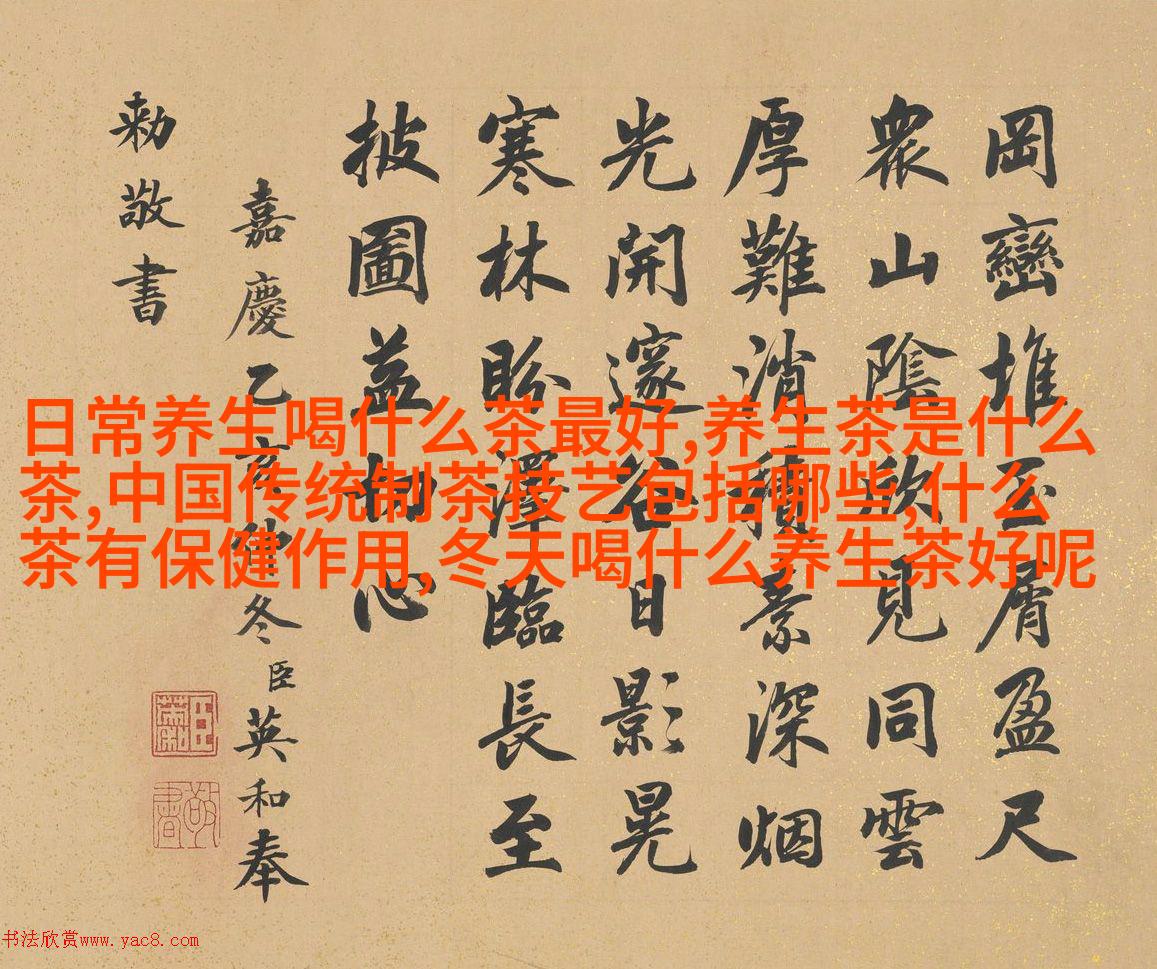 岡巒堆玉屑盈尺
衆山陰欣見同雲
厚難消積素深烟
光開邃谷日影晃
寒林盼澤臨長至
披圖益心
嘉慶乙亥仲冬臣英和奉
勅敬書
敬書
日常养生喝什么茶最好,养生茶是什么
茶,中国传统制茶技艺包括哪些,什么
茶有保健作用,冬天喝什么养生茶好呢
书法欣赏www.yac8.com